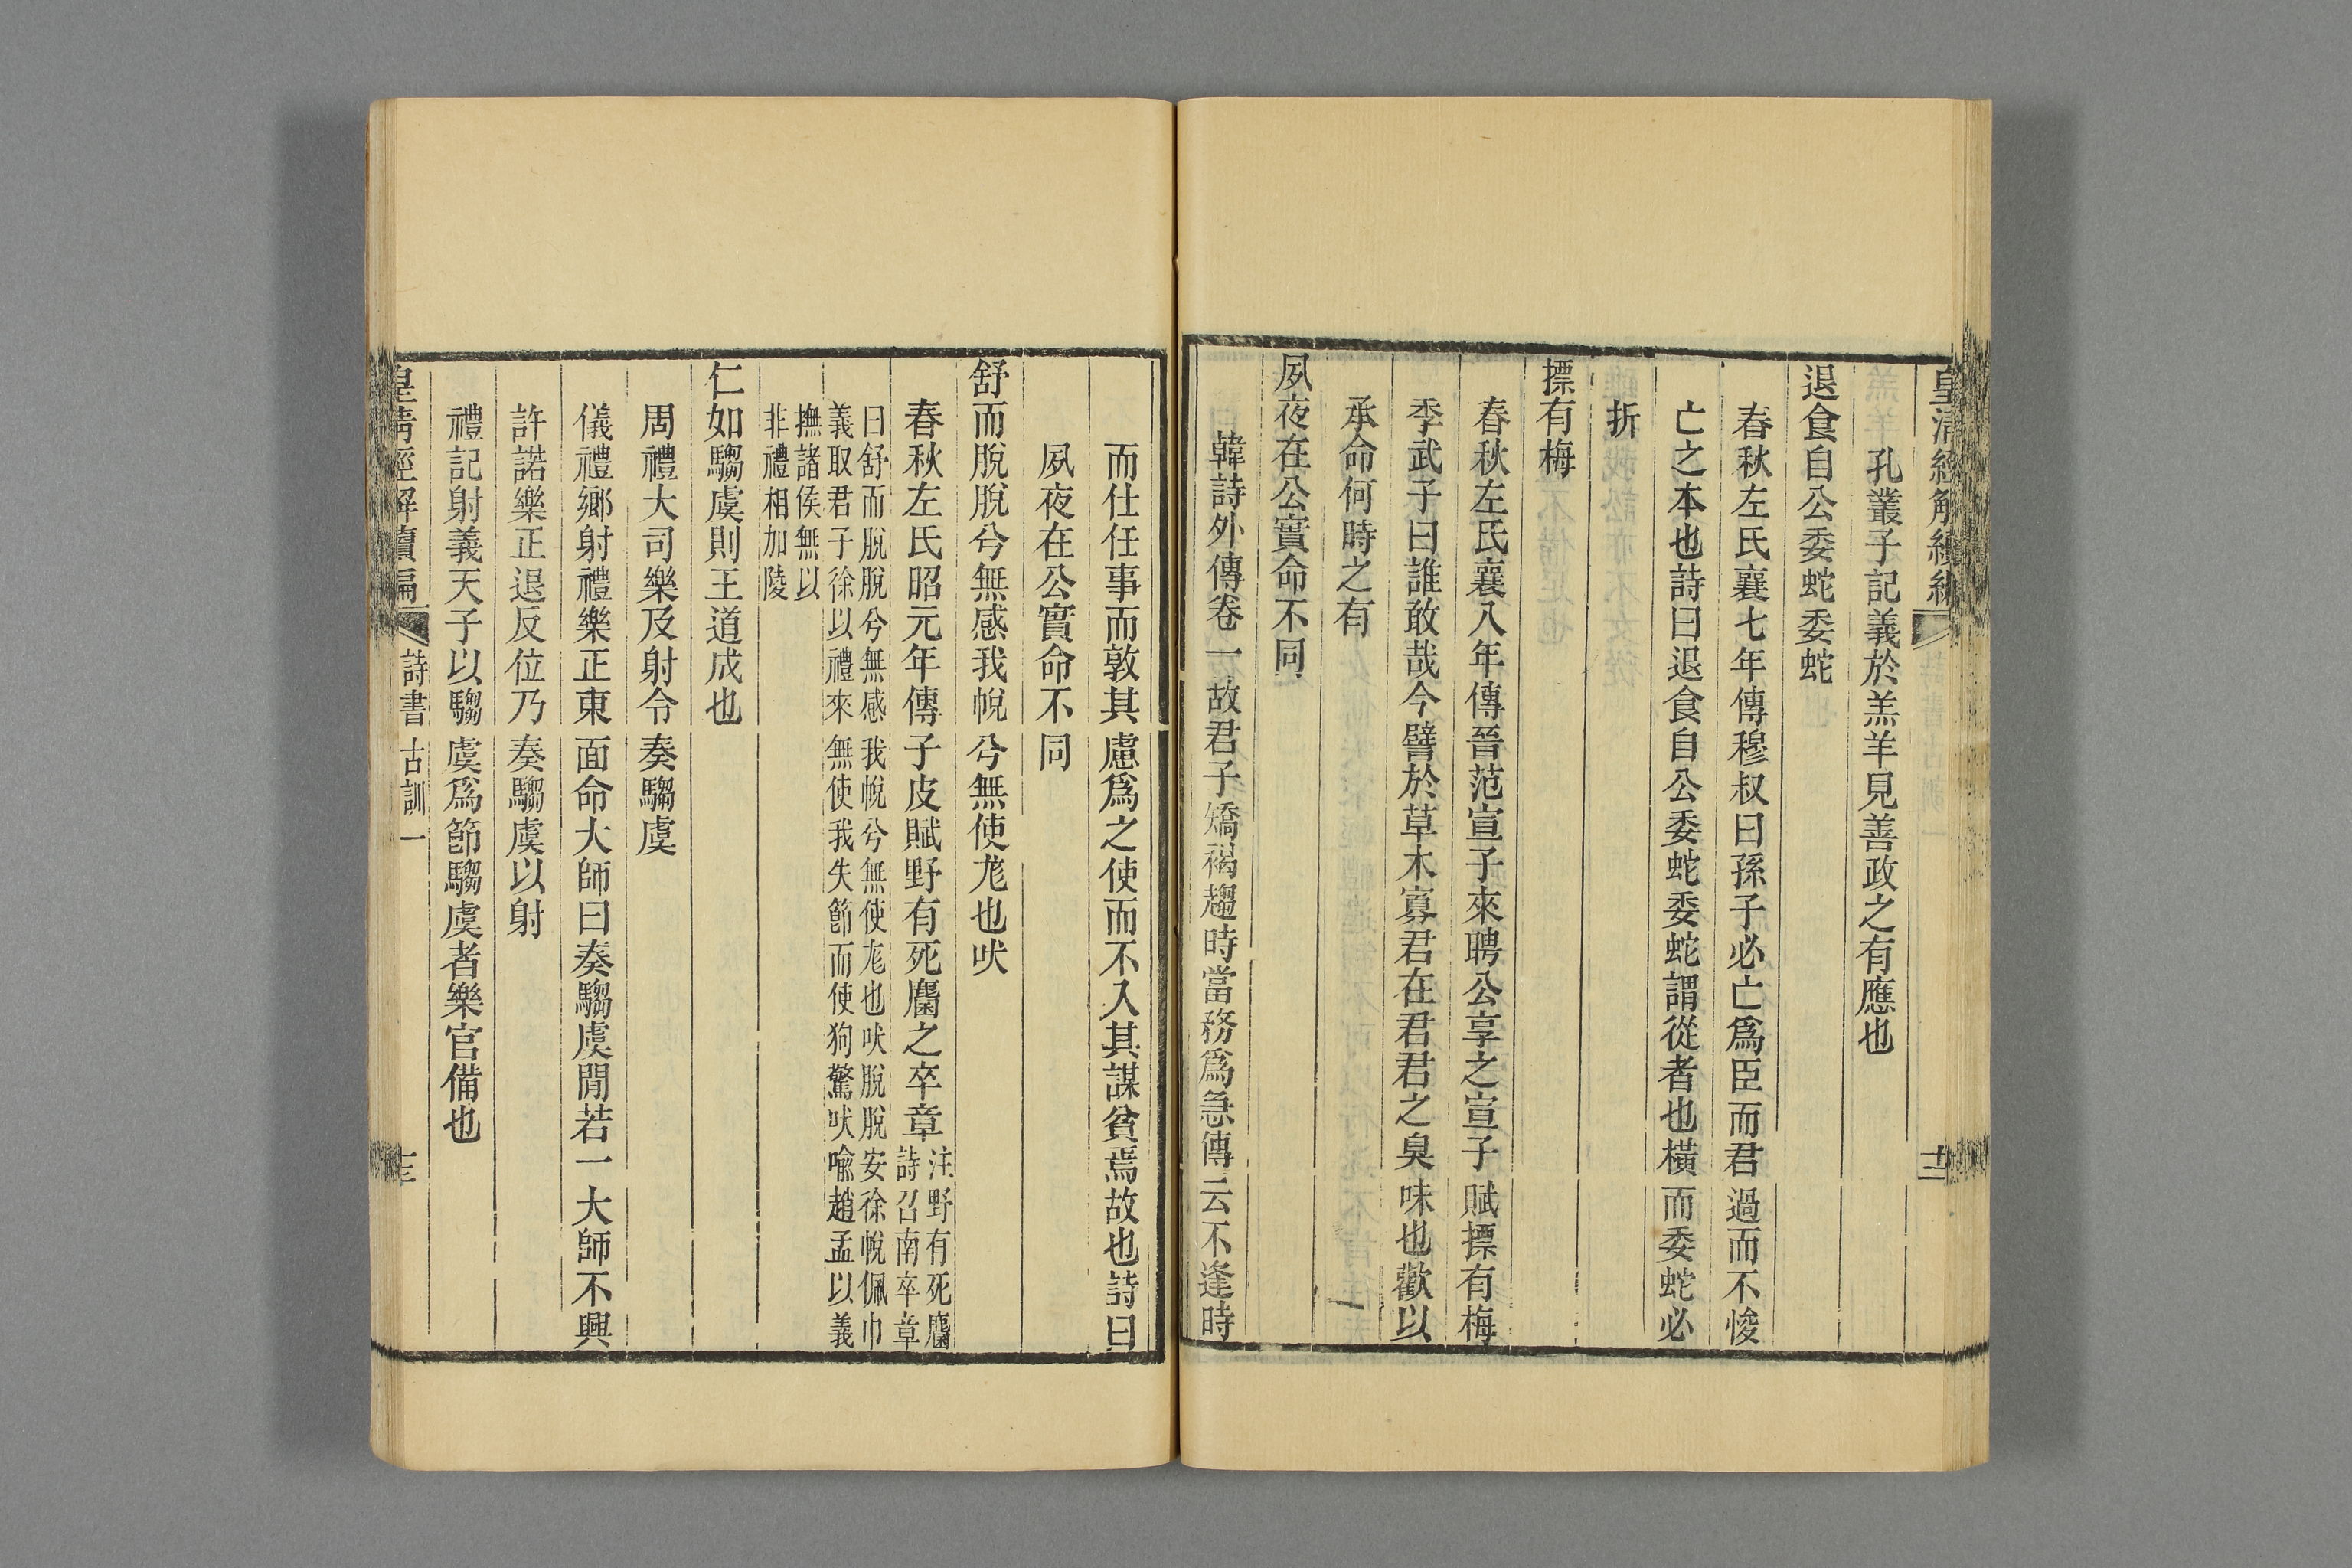 皇清經解續編
十二
孔叢子記義於羔羊見善政之有應也
退食自公委蛇委蛇
春秋左氏襄七年傳穆叔曰孫子必亡爲臣而君過而不悛
亡之本也詩曰退食自公委蛇委蛇謂從者也橫而委蛇必
折
摽有梅
春秋左氏襄八年傳晉范宣子來聘公享之宣子賦摽有梅
季武子曰誰敢哉今譬於草木寡君在君君之臭味也歡以
承命何時之有
夙夜在公實命不同
韓詩外傳卷一故君子矯褐趨時當務爲急傳云不逢時
而仕任事而敦其慮爲之使而不入其謀貧焉故也詩曰
夙夜在公實命不同
舒而脫脫兮無感我帨兮無使尨也吠
春秋左氏昭元年傳子皮賦野有死麕之卒章
注野有死麕
詩召南卒章
曰舒而脫脫兮無感我帨兮無使尨也吠脫脫安徐帨佩巾
義取君子徐以禮來無使我失節而使狗驚吠喩趙孟以義
撫諸侯無以
非禮相加陵
仁如騶虞則王道成也
周禮大司樂及射令奏騶虞
儀禮鄉射禮樂正東面命大師曰奏騶虞閒若一大師不興
許諾樂正退反位乃奏騶虞以射
禮記射義天子以騶虞爲節騶虞者樂官備也
皇清經解續編
詩書古訓一
十三